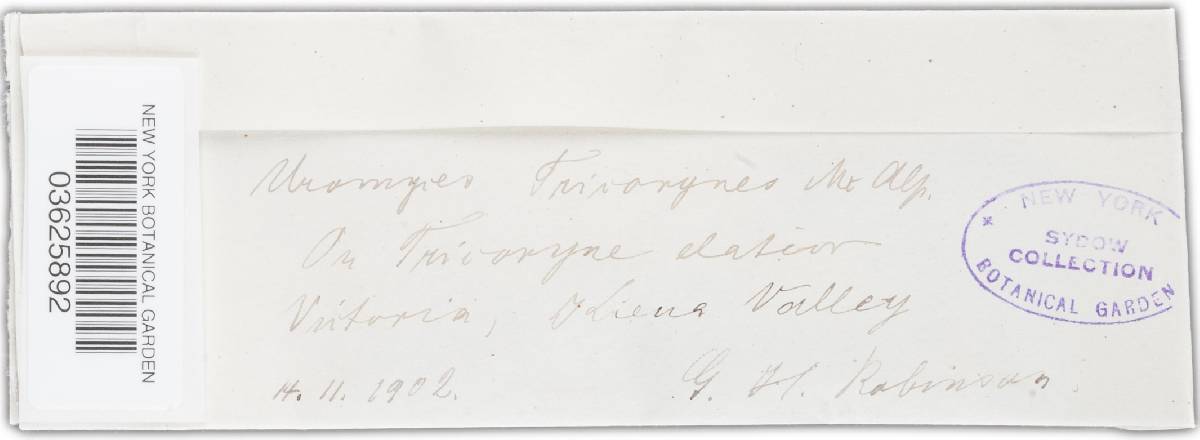 NEW YORK BOTANICAL GARDEN
03625892
Uromyces Tricorynes Mc Alp.
On Tricoryne elatior
Victoria, Kiewa Valley
11. 1902.
G. H. Robinson
* NEW YORK
SYDOW
COLLECTION
BOTANICAL GARDEN